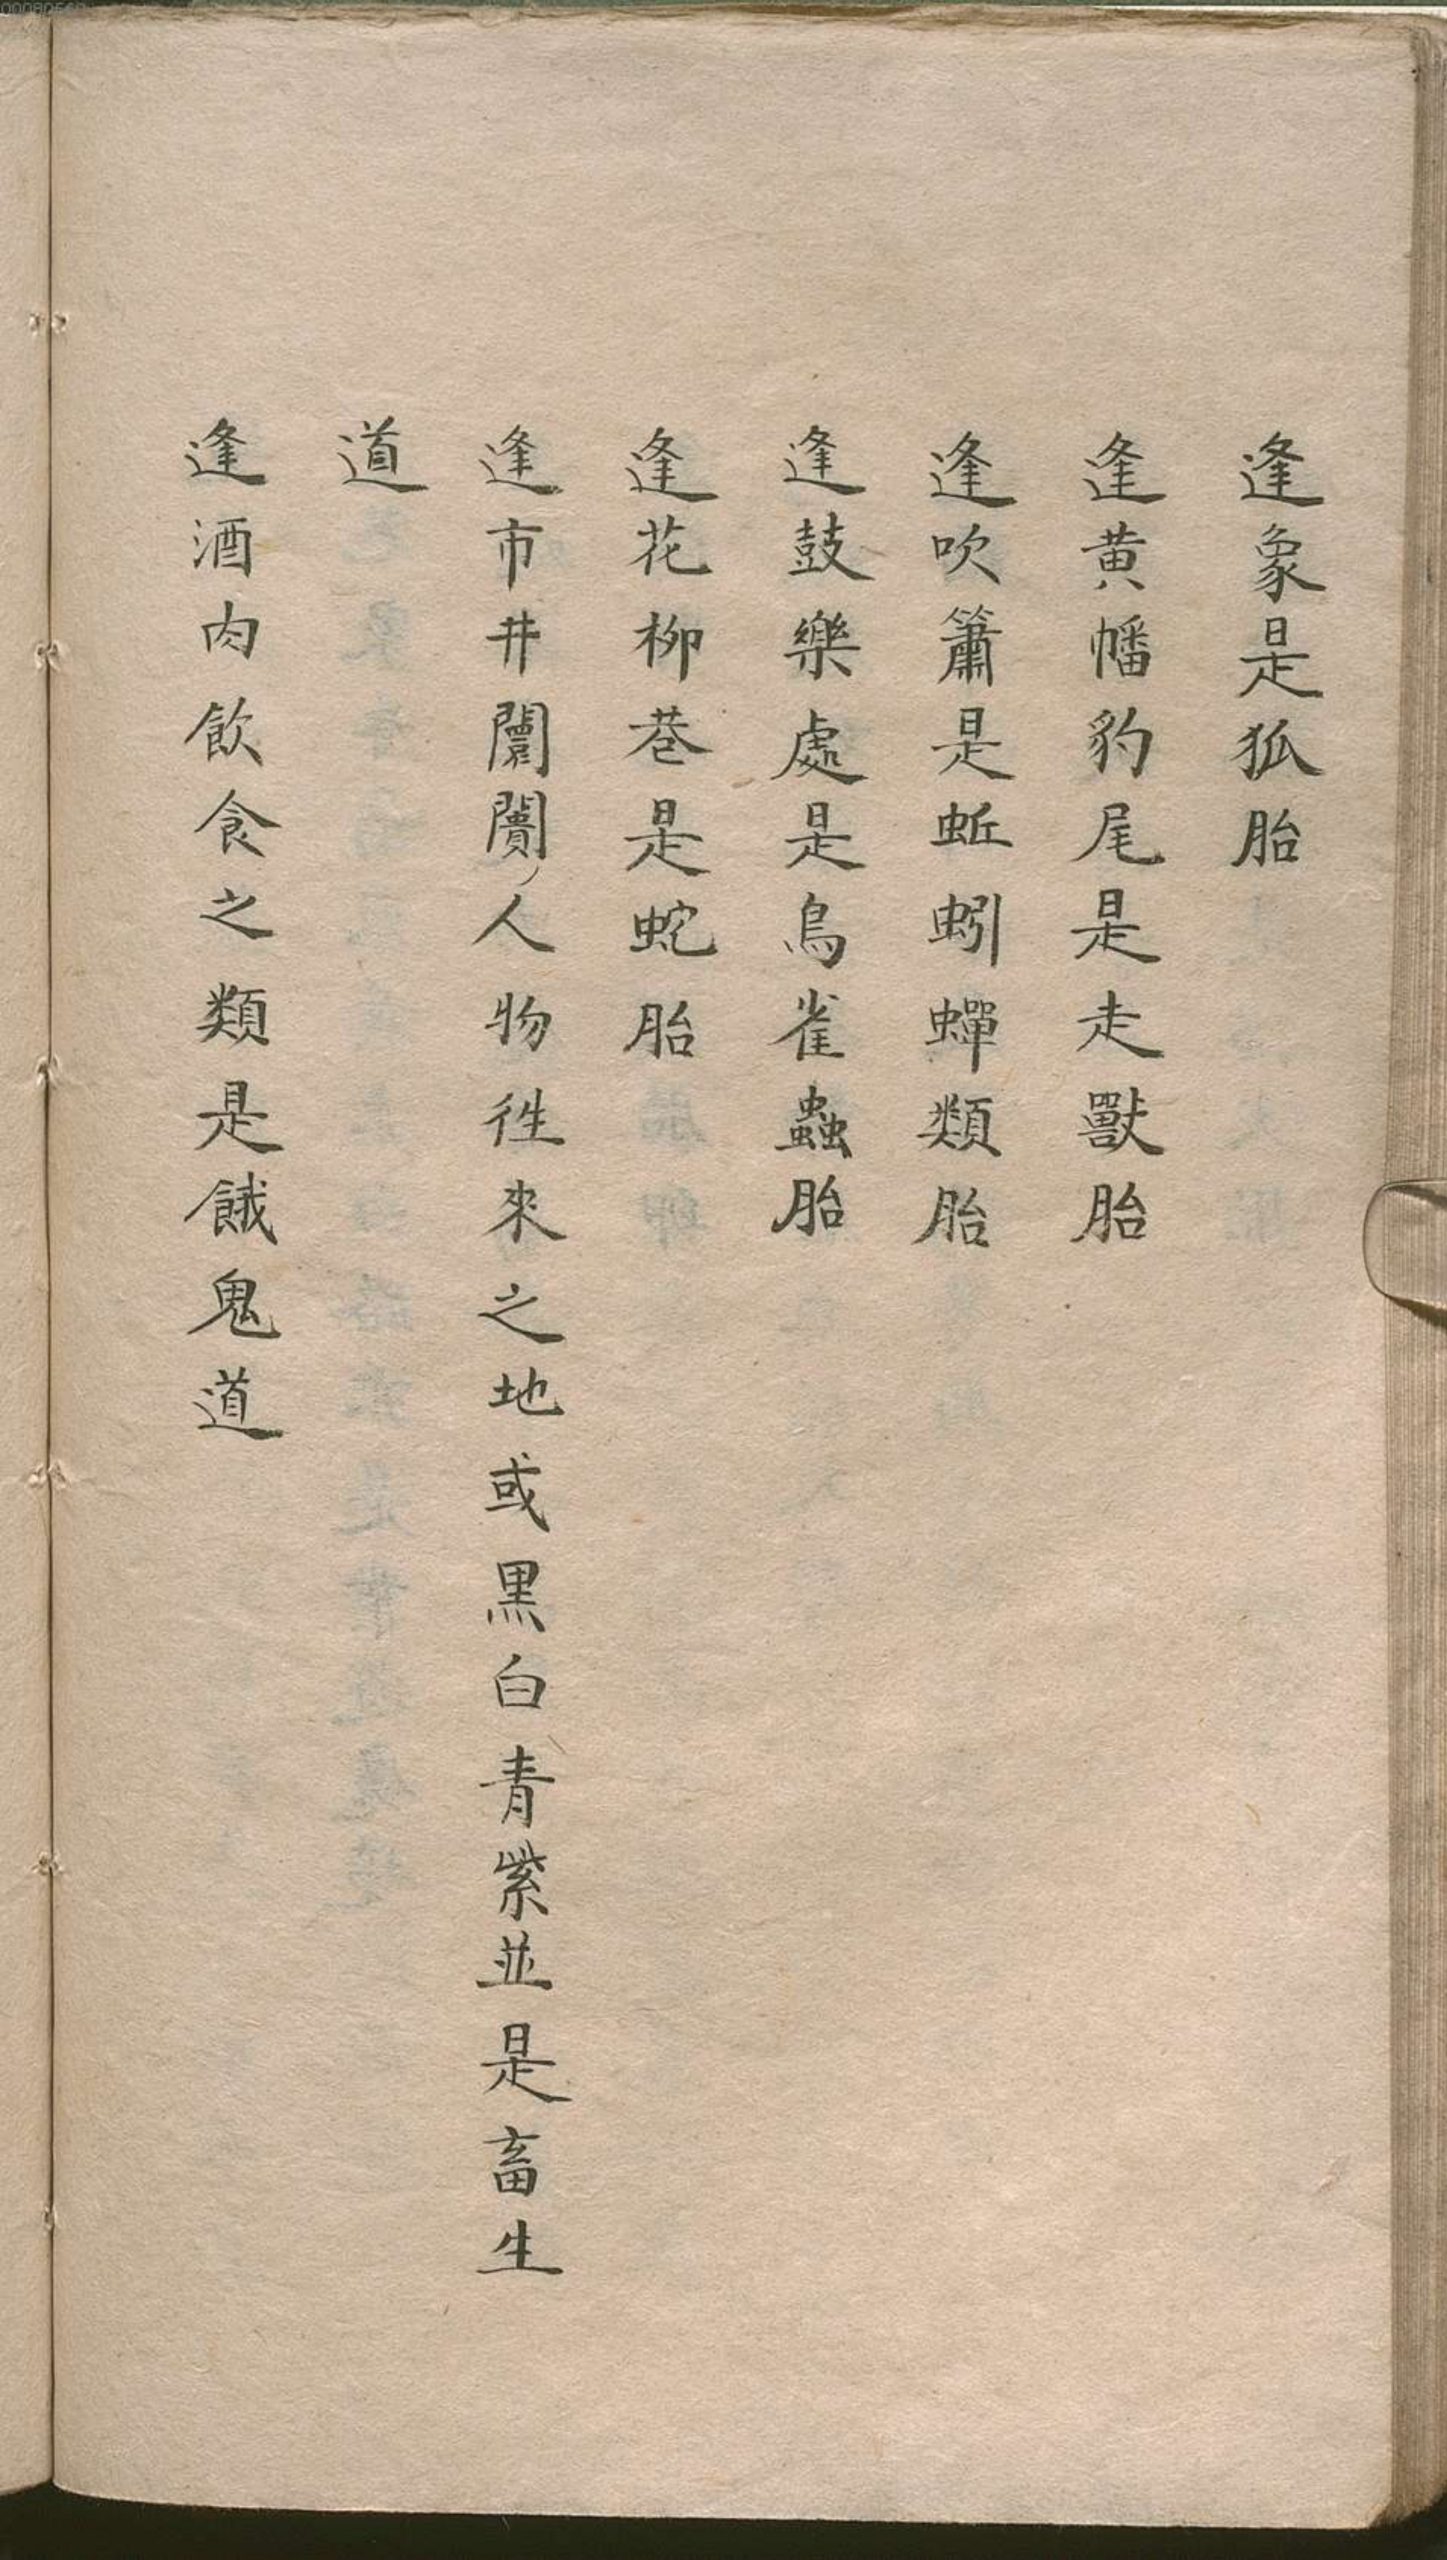 逢象是狐胎
逢黄幡豹尾是走獸胎
逢吹簫是蚯蚓蟬類胎
逢鼓樂處是鳥雀蟲胎
逢花柳巷是蛇胎
逢市井闤闠人物徃來之地或黑白青紫並是畜生
道
逢酒肉飲食之類是餓鬼道